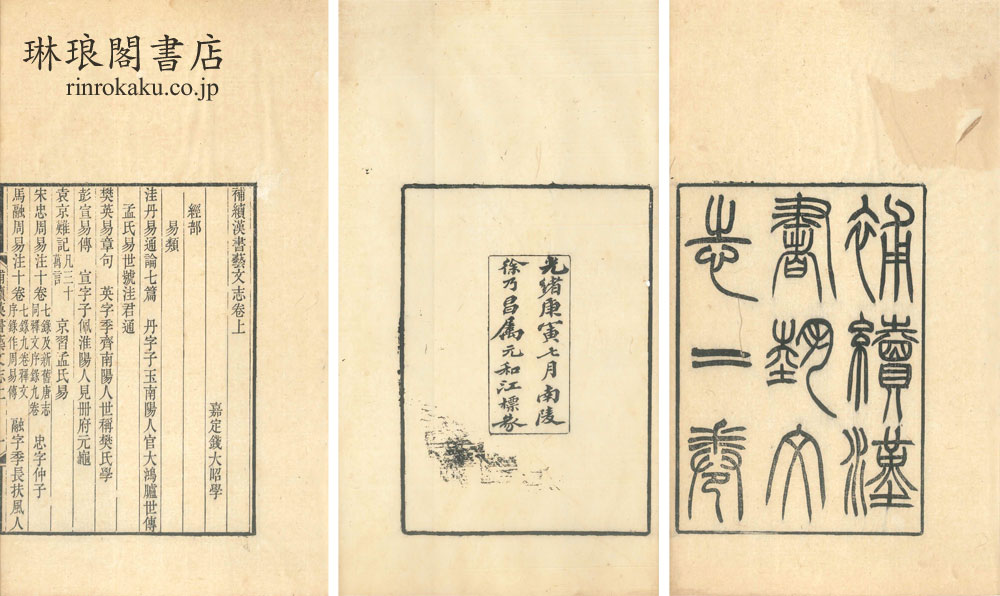 琳琅閣書店
rinrokaku.co.jp
補續漢
書藝文
志二卷
光緒庚寅七月南陵
徐乃昌属元和江標篆
補續漢書藝文志卷上
嘉定錢大昭學
經部
易類
洼丹易通論七篇 丹字子玉南陽人官大鴻臚世傳
孟氏易世號洼君通
樊英易章句 英字季齊南陽人世稱樊氏學
彭宣易傳 宣字子佩淮陽人見冊府元龜
袁京難記凡三十萬言 京習孟氏易
宋忠周易注十卷 七錄及新舊唐志同釋文序錄九卷 忠字仲子
馬融周易注十卷 七錄九卷釋文序錄作周易傳 融字季長扶風人